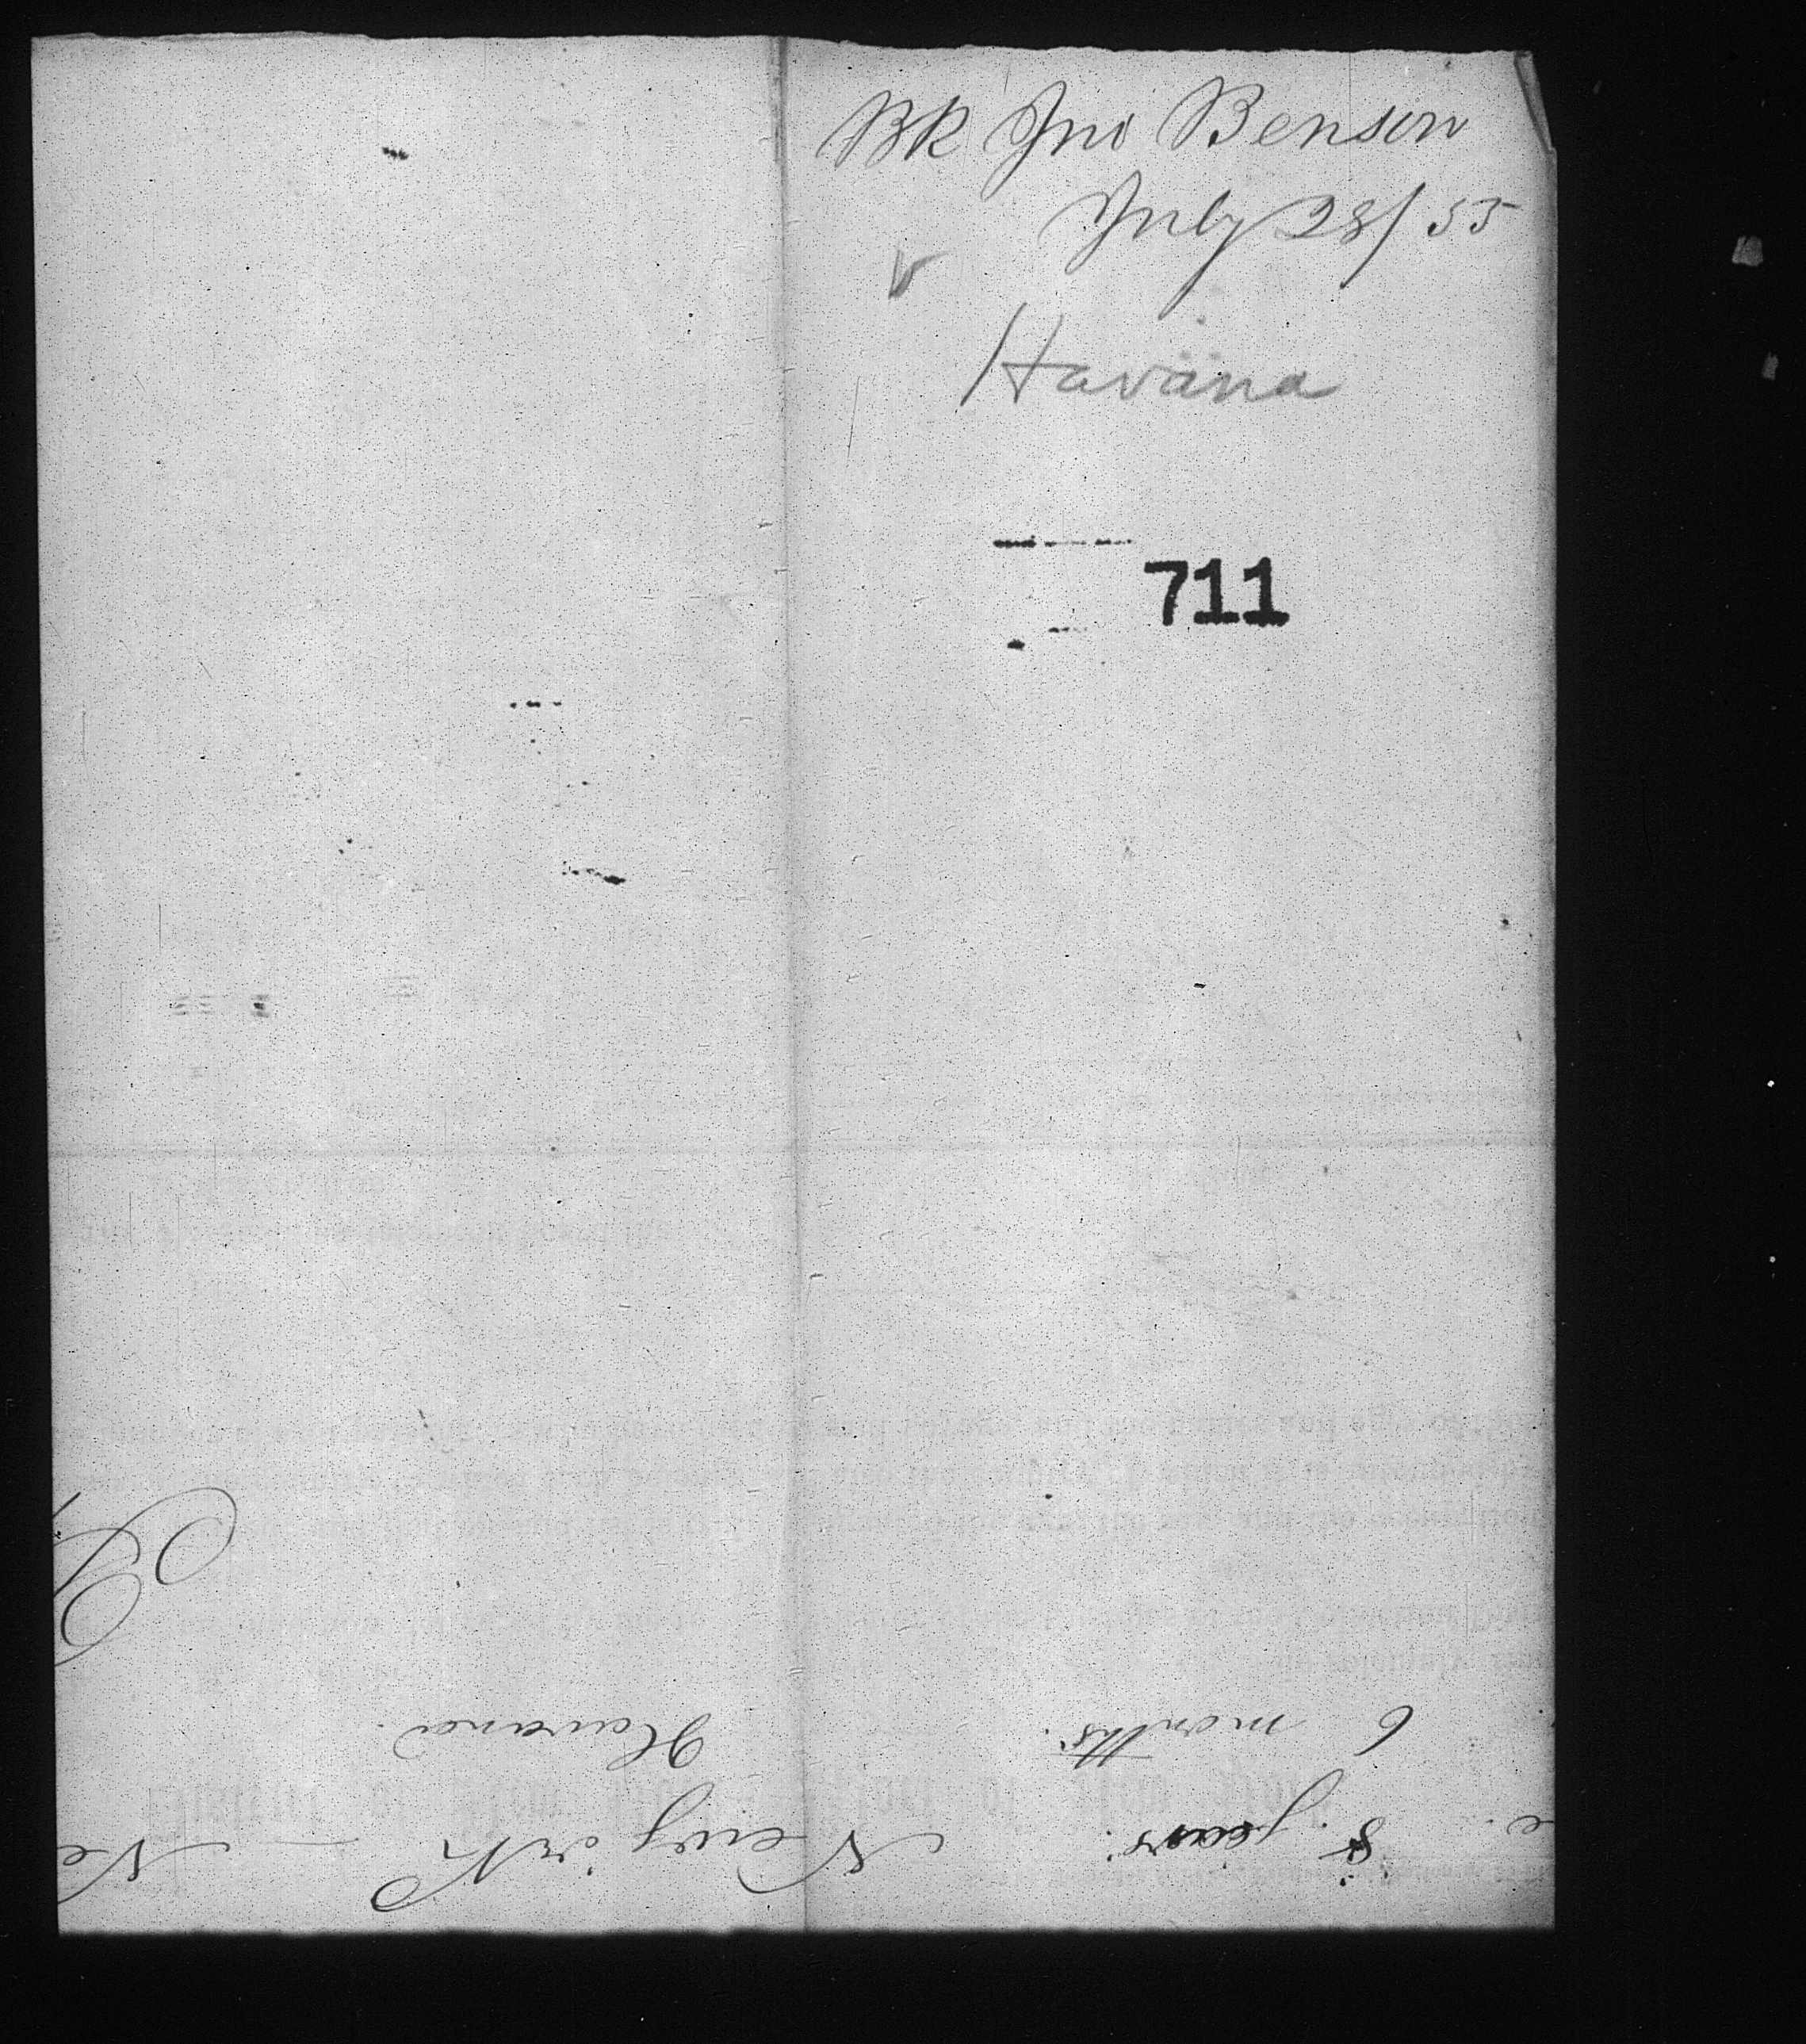 BK Jno Benson
July 28/55
v
Havana
711
6 months. Havana.
8 years. New york — Ne